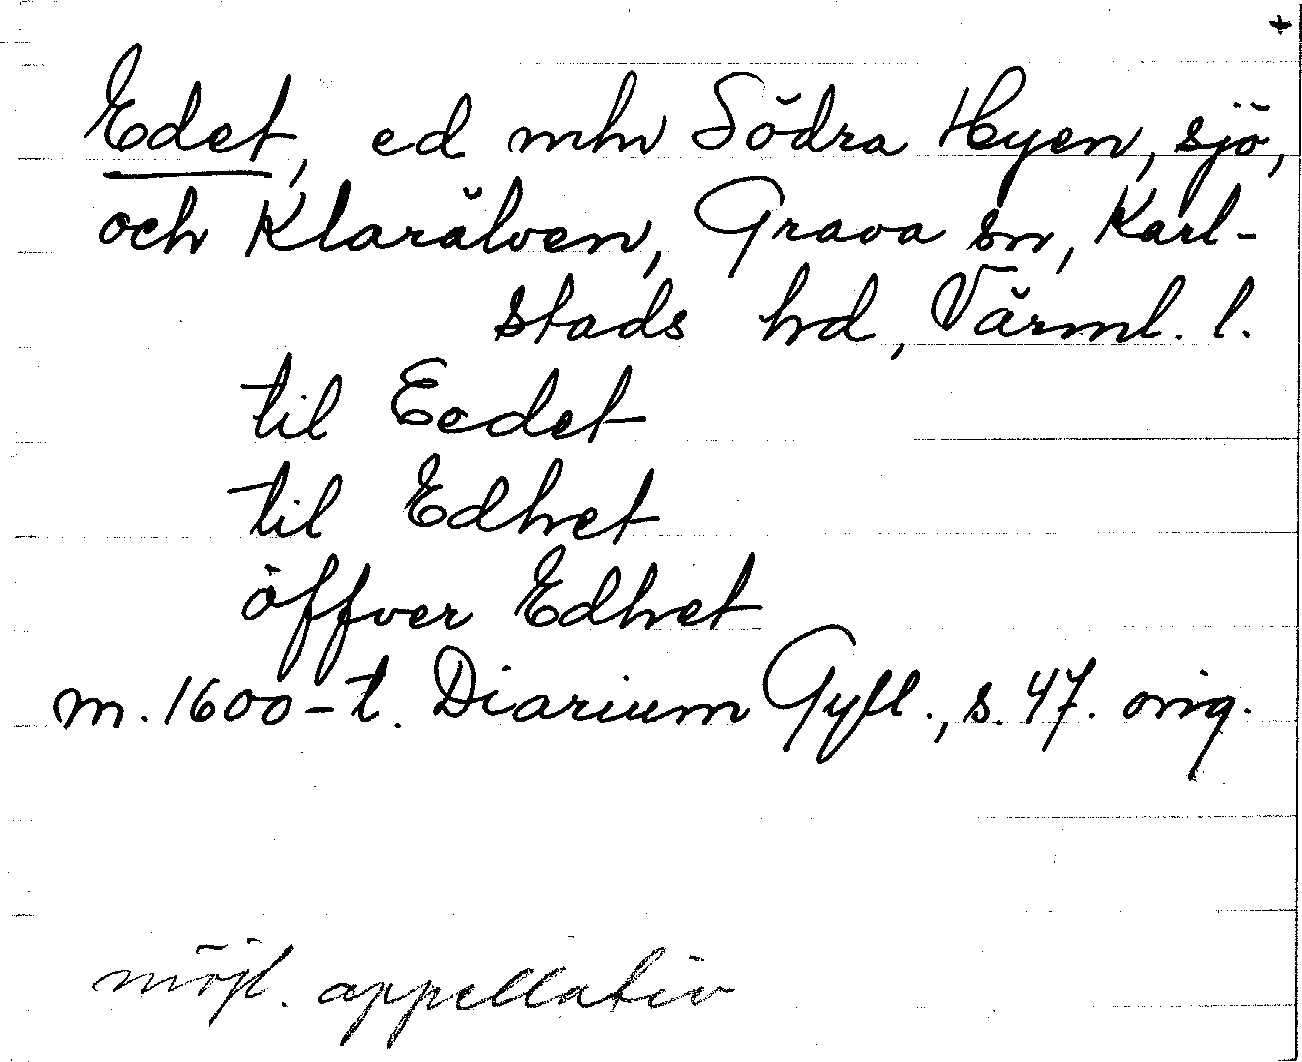 +
Edet, ed mln Södra Hyen, sjö,
och Klarälven, Grava sn, Karl-
stads hd, Värml. l.
til Eedet
til Edhet
öffver Edhet
m. 1600-t. Diarium Gyll., s. 47. orig.
möjl. appellativ